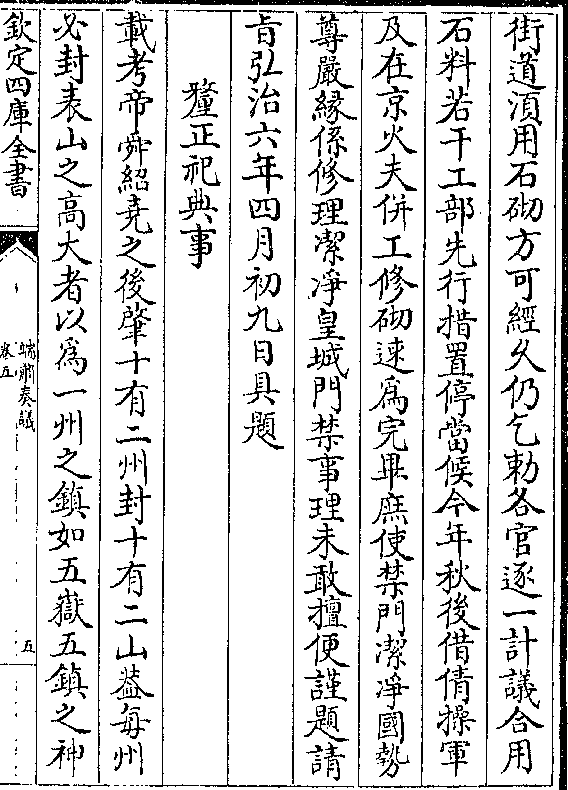 街道湏用石砌方可經乆仍乞勅各官逐一計議合用
石料若干工部先行措置停當候今年秋後借倩操軍
及在京火夫併工修砌速為完畢庶使禁門潔凈國勢
尊嚴縁係修理潔凈皇城門禁事理未敢擅便謹題請
㫖弘治六年四月初九日具題
釐正祀典事
載考帝舜紹堯之後肇十有二州封十有二山葢每州
必封表山之高大者以為一州之鎮如五嶽五鎮之神
欽定四庫全書
端肅奏議
卷五
五